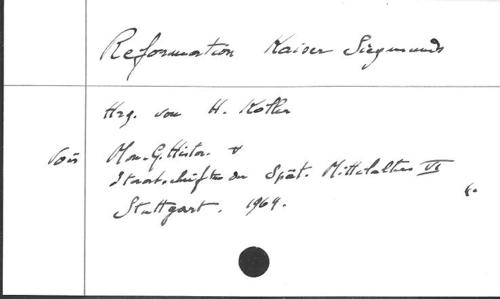 Reformation Kaiser Siegmunds
Hrg. von H. Koller
Voir Mon. G. Histor.
Staatschriften der Spät. Mittelalters VI
Stuttgart. 1964.